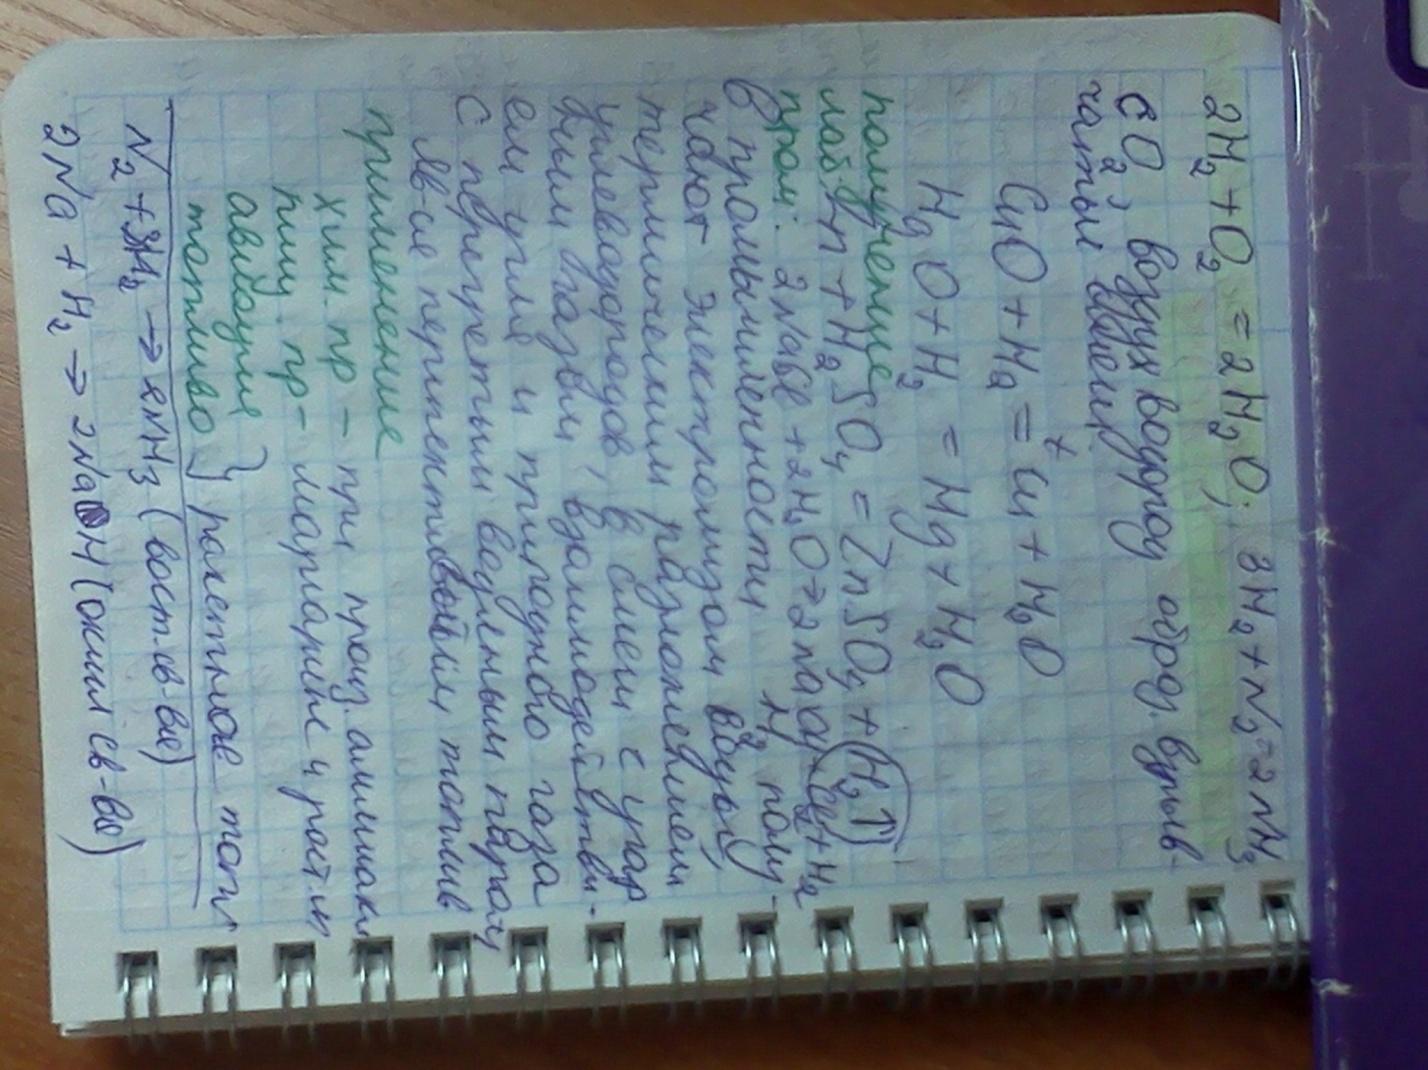 2H₂ + O₂ = 2H₂O; 3H₂ + N₂ = 2NH₃
с O₂, воздух водород образ. взрыв-
чатые смеси.
CuO + H₂ =ᵗ Cu + H₂O
HgO + H₂ = Hg + H₂O
получение
лаб. Zn + H₂SO₄ = ZnSO₄ + H₂↑
пром: 2NaCl + 2H₂O → 2NaOH + Cl₂ + H₂
в промышленности H₂ полу-
чают электролизом воды,
термическим разложением
углеводородов, в смеси с угар
ным газом взаимодействи-
ем угля и природного газа
с перегретым водяным паром
яв-ся перспективным топлив
применение
хим. пр – при произ. аммиака
пищ. пр – маргарин и раст. м
авиация
топливо } ракетное топл
N₂ + 3H₂ → 2NH₃ (вост. св-ва)
2Na + H₂ → 2NaH (окисл св-ва)